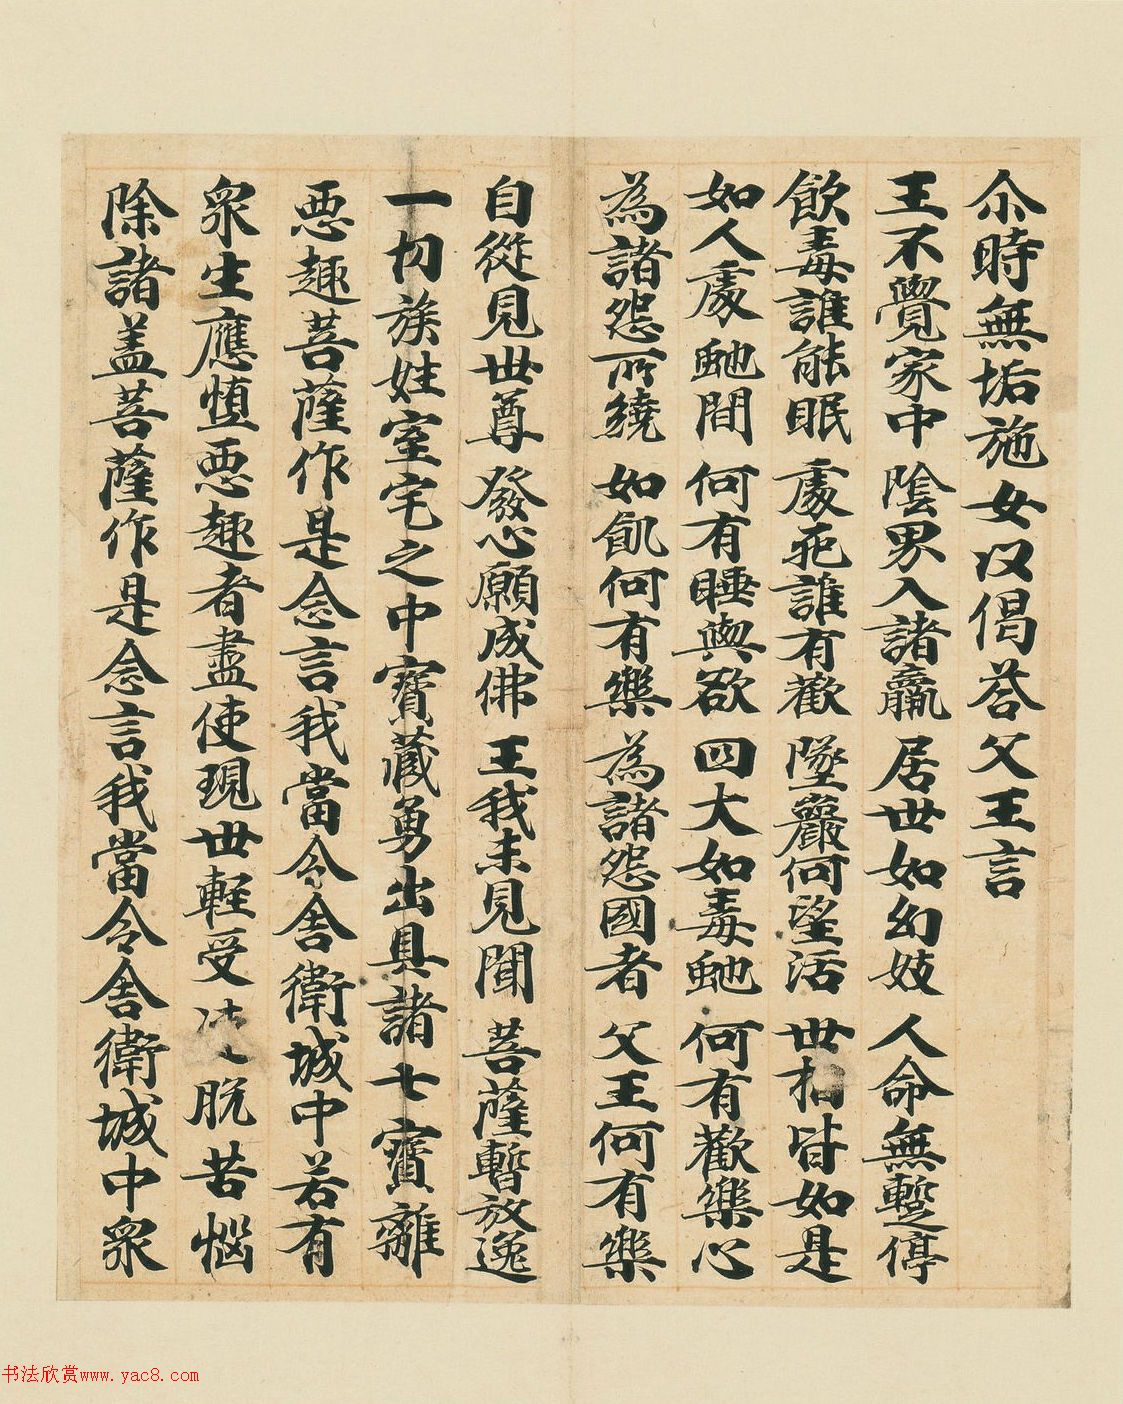 尒時無垢施女以偈荅父王言
王不覺家中 陰男入諸羸 居世如幻妓 人命無蹔停
飲毒誰能眠 處死誰有歡 墜巖何望活 世相皆如是
如人處虵間 何有睡與欲 四大如毒虵 何有歡樂心
為諸怨所繞 如飢何有樂 為諸怨國者 父王何有樂
自從見世尊 發心願成佛 王我未見聞 菩薩暫放逸
一切族姓室宅之中寶藏勇出具諸七寶離
惡趣菩薩作是念言我當令舍衛城中若有
衆生應慎惡趣者盡使現世輕受 脫苦惱
除諸盖菩薩作是念言我當令舍衛城中衆
书法欣赏www.yac8.com